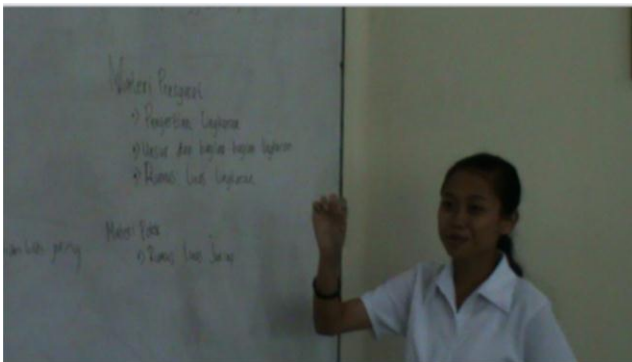 Materi Prasyarat
Pengertian lingkaran
Unsur dan bagian-bagian lingkaran
Rumus Luas Lingkaran
Materi
Rumus Luas Juring